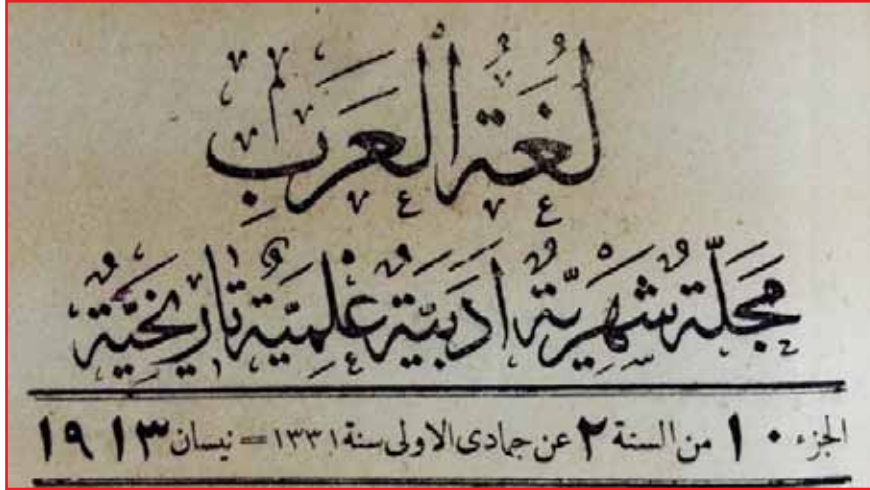 لُغَةُ الْعَرَبِ
مَجَلَّةٌ شَهْرِيَّةٌ أَدَبِيَّةٌ عِلْمِيَّةٌ تَارِيخِيَّةٌ
الجزء ١٠ من السنة ٢ عن جمادى الاولى سنة ١٣٣١ = نيسان ١٩١٣